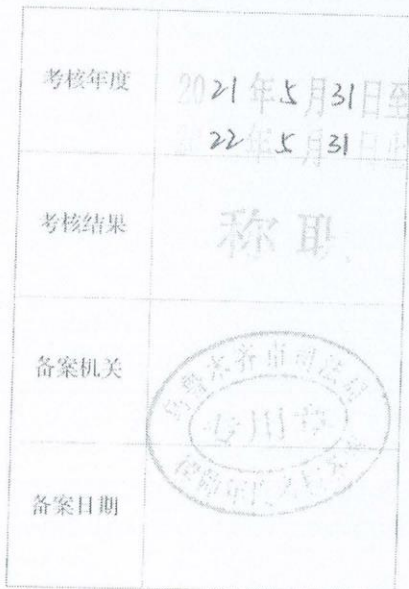 考核年度
2021年5月31日至
2022年5月31日止
考核结果
称职
备案机关
乌鲁木齐市司法局
专用章
备案日期